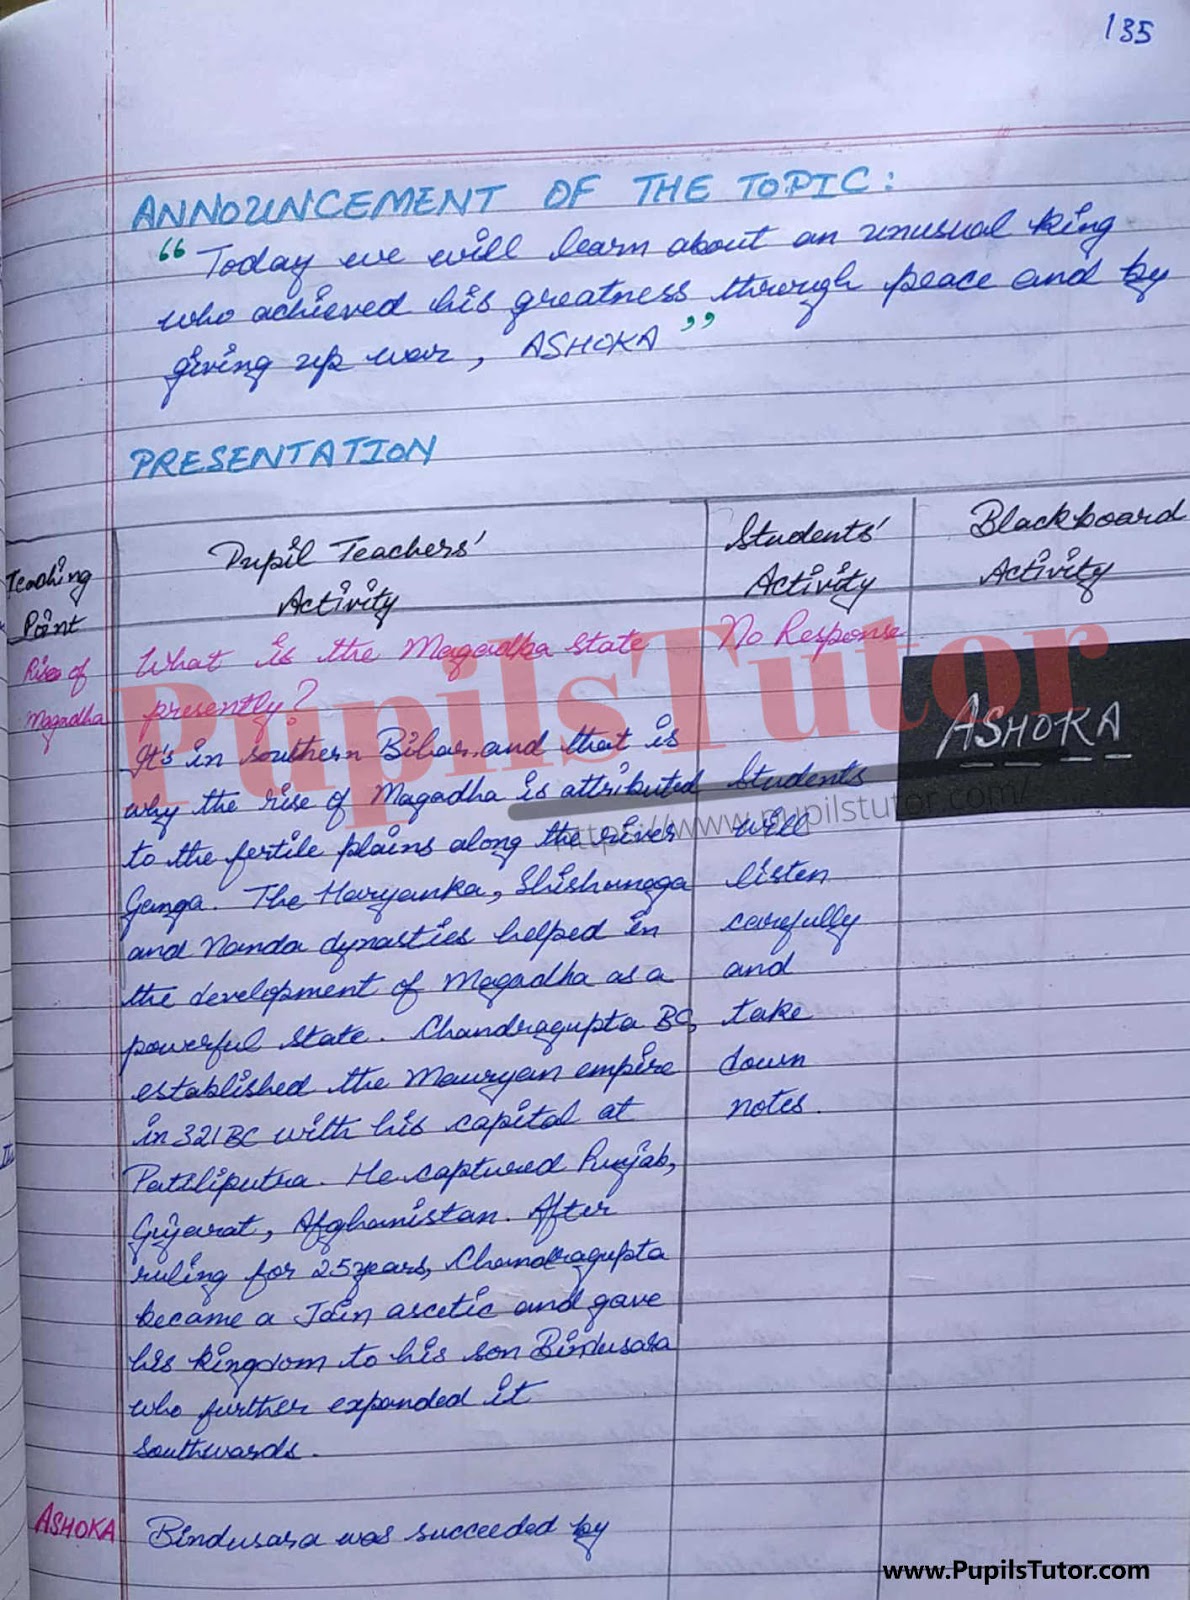 135
ANNOUNCEMENT OF THE TOPIC:
“ Today we will learn about an unusual king
who achieved his greatness through peace and by
giving up war, ASHOKA ”
PRESENTATION
Teaching
Point
Pupil Teachers'
Activity
Students'
Activity
Blackboard
Activity
Rise of
Magadha
What is the Magadha state
presently?
It's in southern Bihar and that is
why the rise of Magadha is attributed
to the fertile plains along the river
Ganga. The Haryanka, Shishunaga
and Nanda dynasties helped in
the development of Magadha as a
powerful state. Chandragupta BC,
established the Mauryan empire
in 321 BC with his capital at
Patiliputra. He captured Punjab,
Gujarat, Afghanistan. After
ruling for 25 years, Chandragupta
became a Jain ascetic and gave
his kingdom to his son Bindusara
who further expanded it
southwards.
No Response
Students
will
listen
carefully
and
take
down
notes.
ASHOKA
ASHOKA
Bindusara was succeeded by
PupilsTutor
https://www.pupilstutor.com/
www.PupilsTutor.com